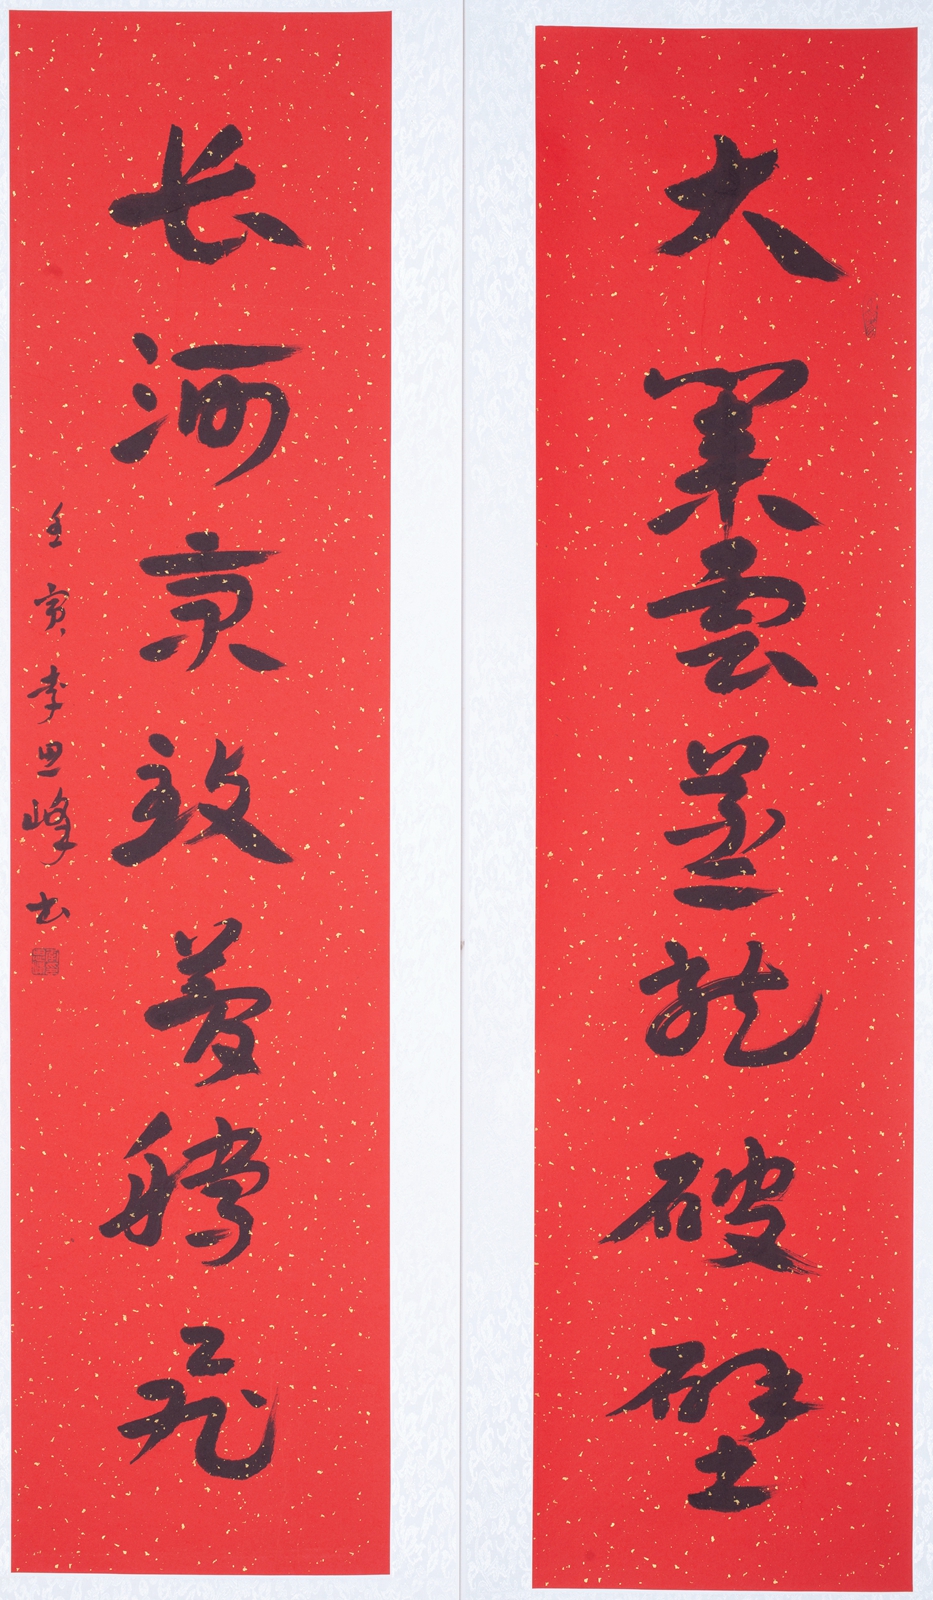 大业云蒸龙破壁
长河京致梦腾飞
壬寅李思峰书